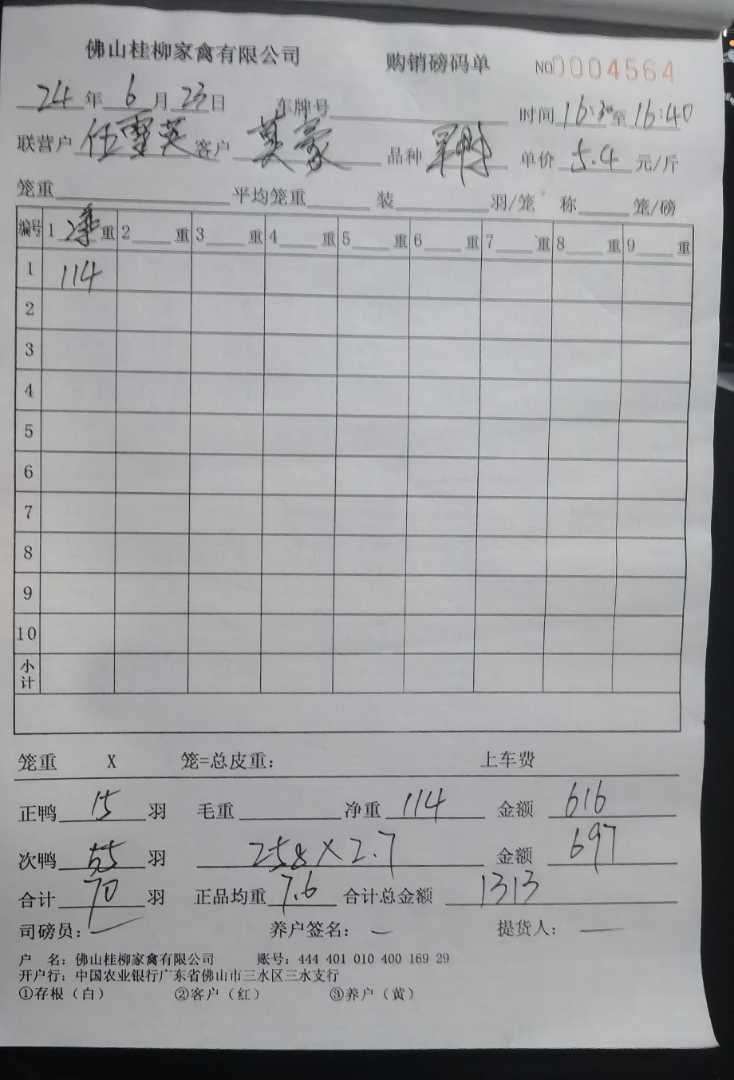 佛山桂柳家禽有限公司 购销磅码单 NO0004564
24年6月23日 车牌号 时间16:30至16:40
联营户 任雪英 客户 莫豪 品种 单价 5.4 元/斤
笼重 平均笼重 装 羽/笼 称 笼/磅
编号 1 净重 2 重 3 重 4 重 5 重 6 重 7 重 8 重 9 重
1 114
2
3
4
5
6
7
8
9
10
小计
笼重 X 笼=总皮重: 上车费
正鸭 15 羽 毛重 净重 114 金额 616
次鸭 55 羽 258×2.7 金额 697
合计 70 羽 正品均重 7.6 合计总金额 1313
司磅员: 养户签名: 提货人:
户 名: 佛山桂柳家禽有限公司 账号: 444 401 010 400 169 29
开户行: 中国农业银行广东省佛山市三水区三水支行
①存根(白) ②客户(红) ③养户(黄)